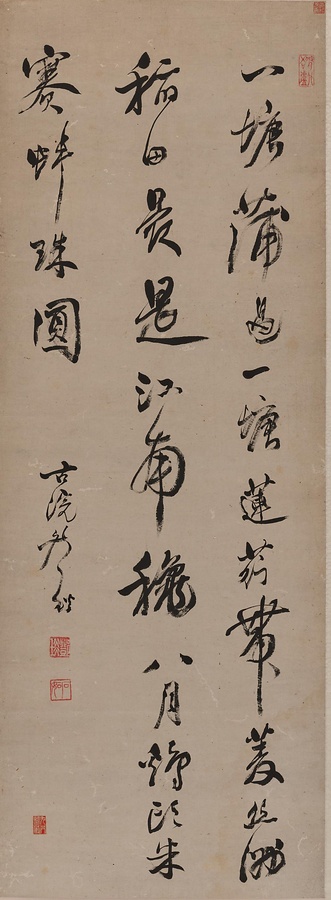 一塘蒲過一塘蓮荇帶菱絲滿
稻田最是江南穐八月鷄頭米
賽蚌珠圓
古浣